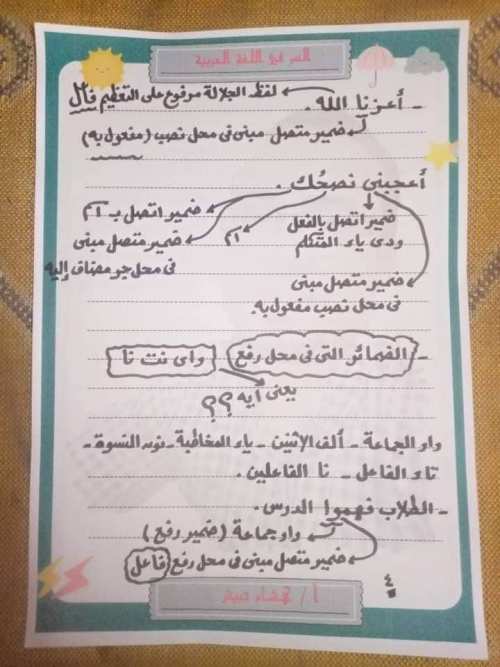 السر في اللغة العربية
- أعزنا الله. لفظ الجلالة مرفوع على التعظيم فاعل
ضمير متصل مبنى فى محل نصب (مفعول به)
أعجبنى نصحُك.
ضمير اتصل بالفعل ودى ياء المتكلم
ضمير متصل مبنى فى محل نصب مفعول به.
اسم
ضمير اتصل بـ اسم
ضمير متصل مبنى فى محل جر مضاف إليه
- الضمائر التى فى محل رفع واى نت نا
يعنى ايه ؟؟
واو الجماعة - ألف الإثنين - ياء المخاطبة - نون النسوة -
تاء الفاعل - نا الفاعلين.
- الطلاب فهموا الدرس.
واو جماعة (ضمير رفع)
ضمير متصل مبنى فى محل رفع فاعل
٤
أ /